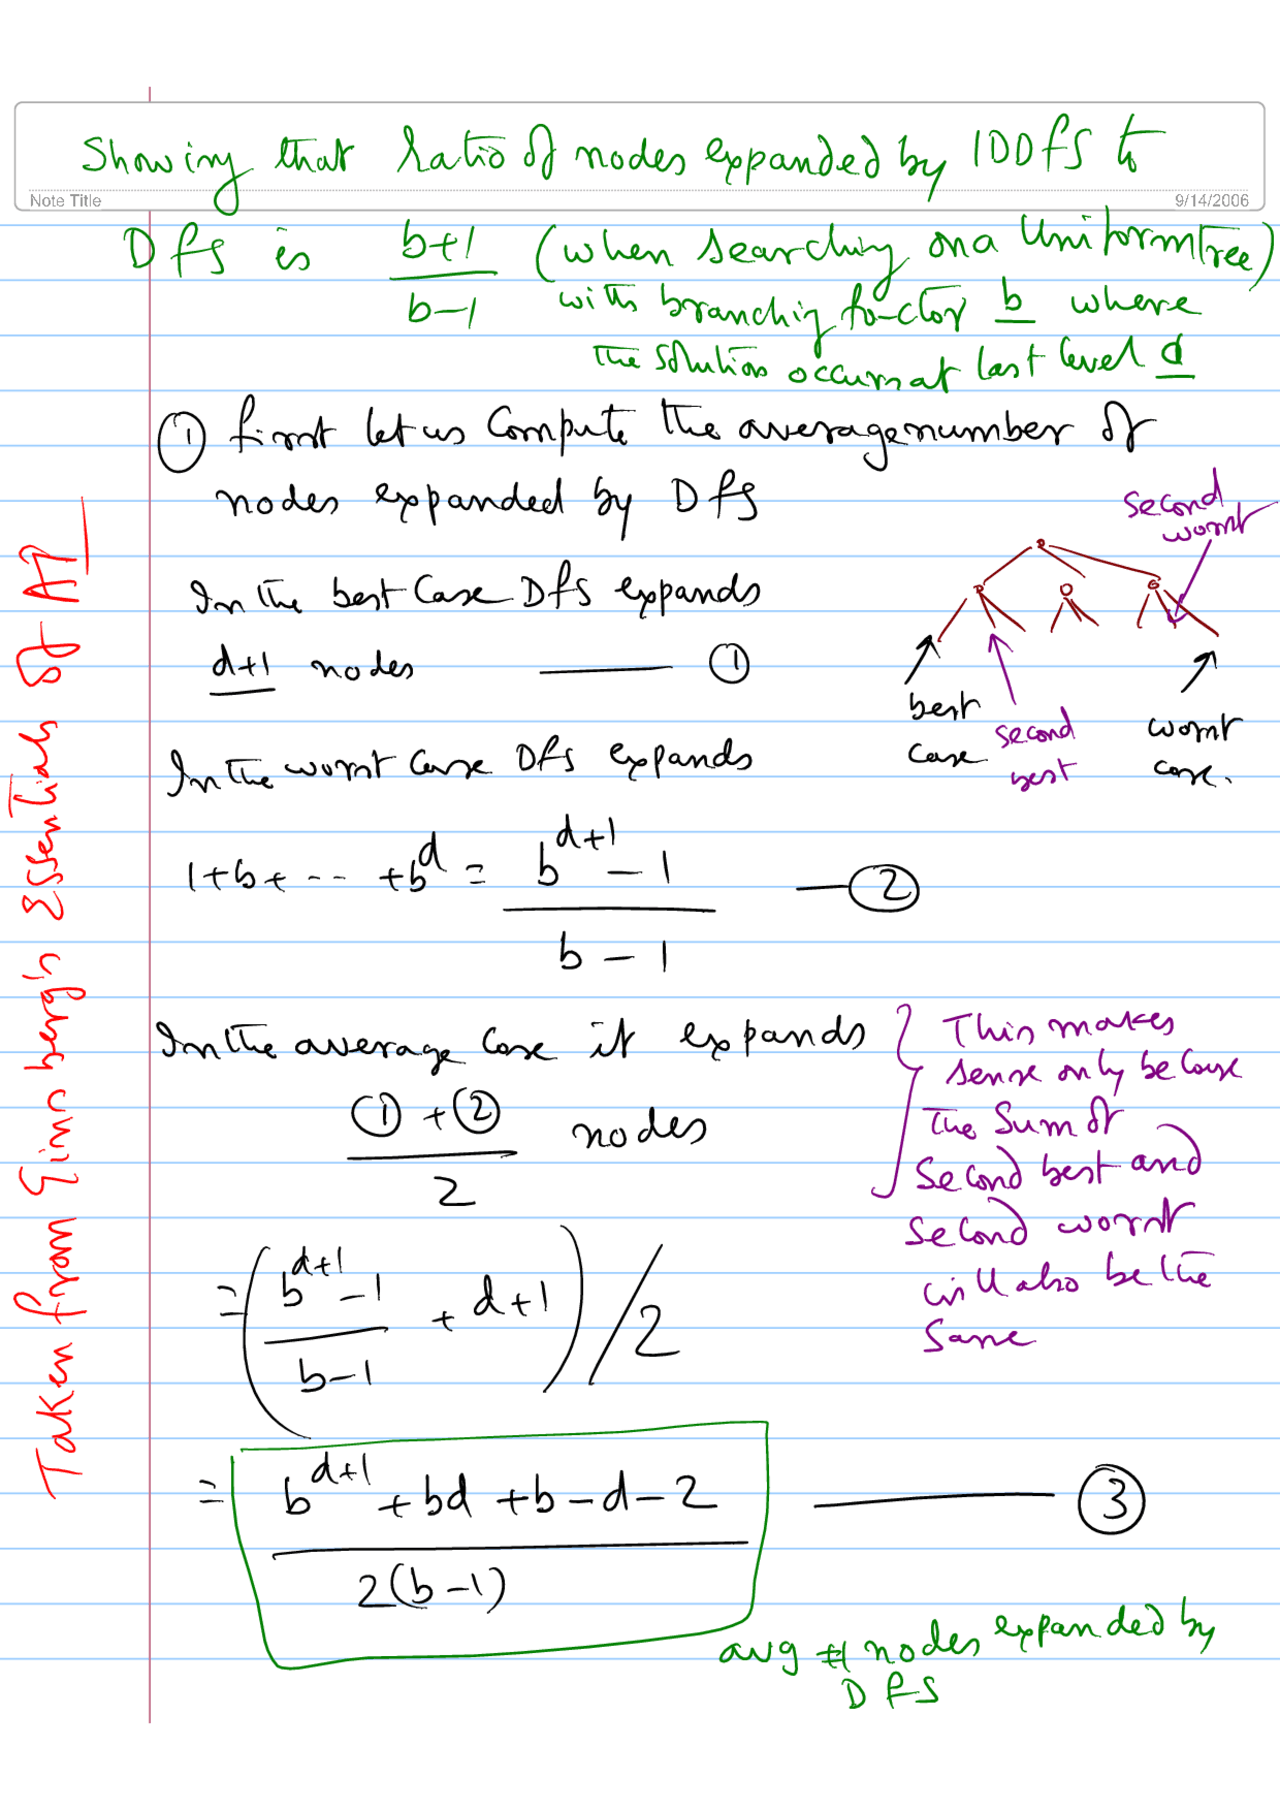 Showing that ratio of nodes expanded by IDDFS to
Note Title
9/14/2006
DFS is b+1 / b-1 (when searching on a Uniform Tree)
with branching factor b where
the solution occurs at last level d
① First let us compute the average number of
nodes expanded by DFS
second
worst
In the best case DFS expands
d+1 nodes —— ①
best
case
second
best
worst
case.
In the worst case DFS expands
1+b+ -- +b^d = (b^(d+1) - 1) / (b - 1) —②
In the average case it expands
(① + ②) / 2 nodes
This makes
sense only because
the sum of
second best and
second worst
will also be the
same
= ((b^(d+1) - 1) / (b-1) + d+1) / 2
= (b^(d+1) + bd + b - d - 2) / 2(b-1) —— ③
avg # nodes expanded by
DFS
Taken from Ginsberg's Essentials of AI